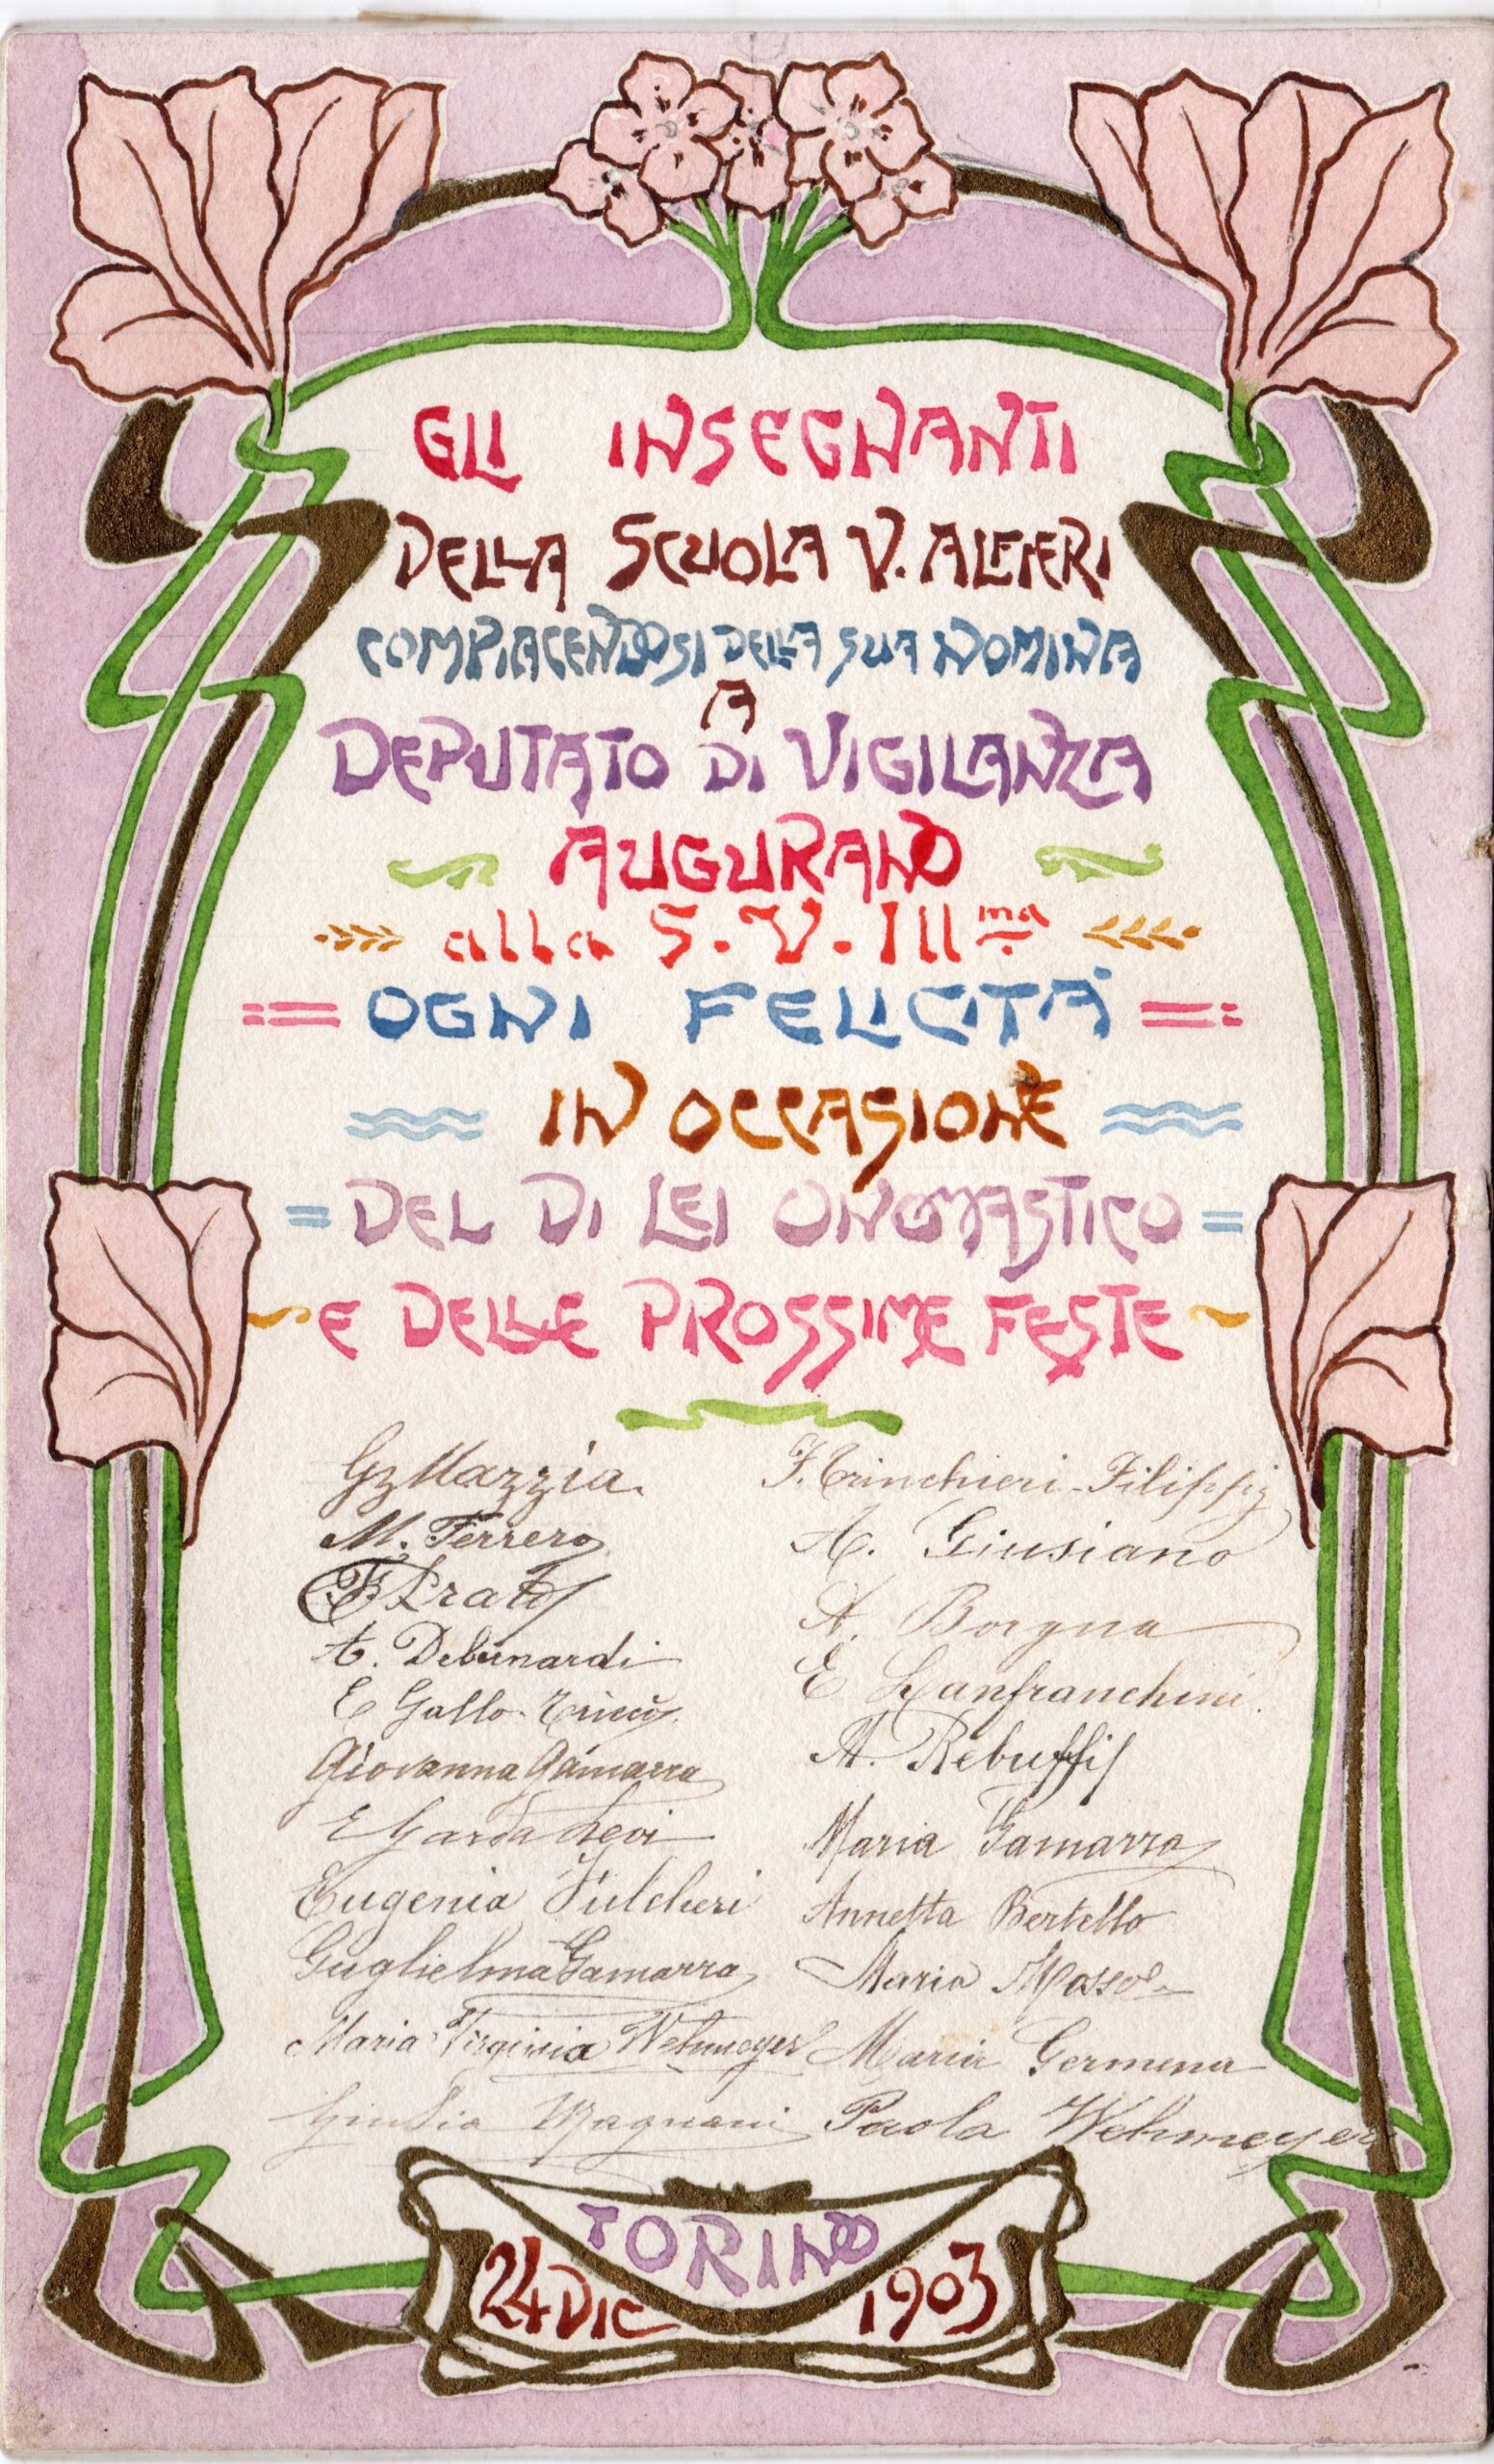 GLI INSEGNANTI
DELLA SCUOLA V. ALFIERI
COMPIACENDOSI DELLA SUA NOMINA
A
DEPUTATO DI VIGILANZA
AUGURANO
alla S. V. Ill.ma
OGNI FELICITÀ
IN OCCASIONE
DEL DI LEI ONOMASTICO
E DELLE PROSSIME FESTE
Mazzia.
M. Ferrero
Prato
A. Debernardi
E Gallo
Giovanna Gamarra
E Garda Levi
Eugenia Fulcheri
Guglielma Gamarra
Maria Virginia Wehmeyer
Giulia Magnani
F. Trinchieri-Filippi
Giusiano
A. Borgna
E Lanfranchini.
M. Rebuffi
Maria Gamarra
Annetta Bertello
Maria Mosso
Maria Germena
Paola Wehmeyer
TORINO
24 DIC 1903